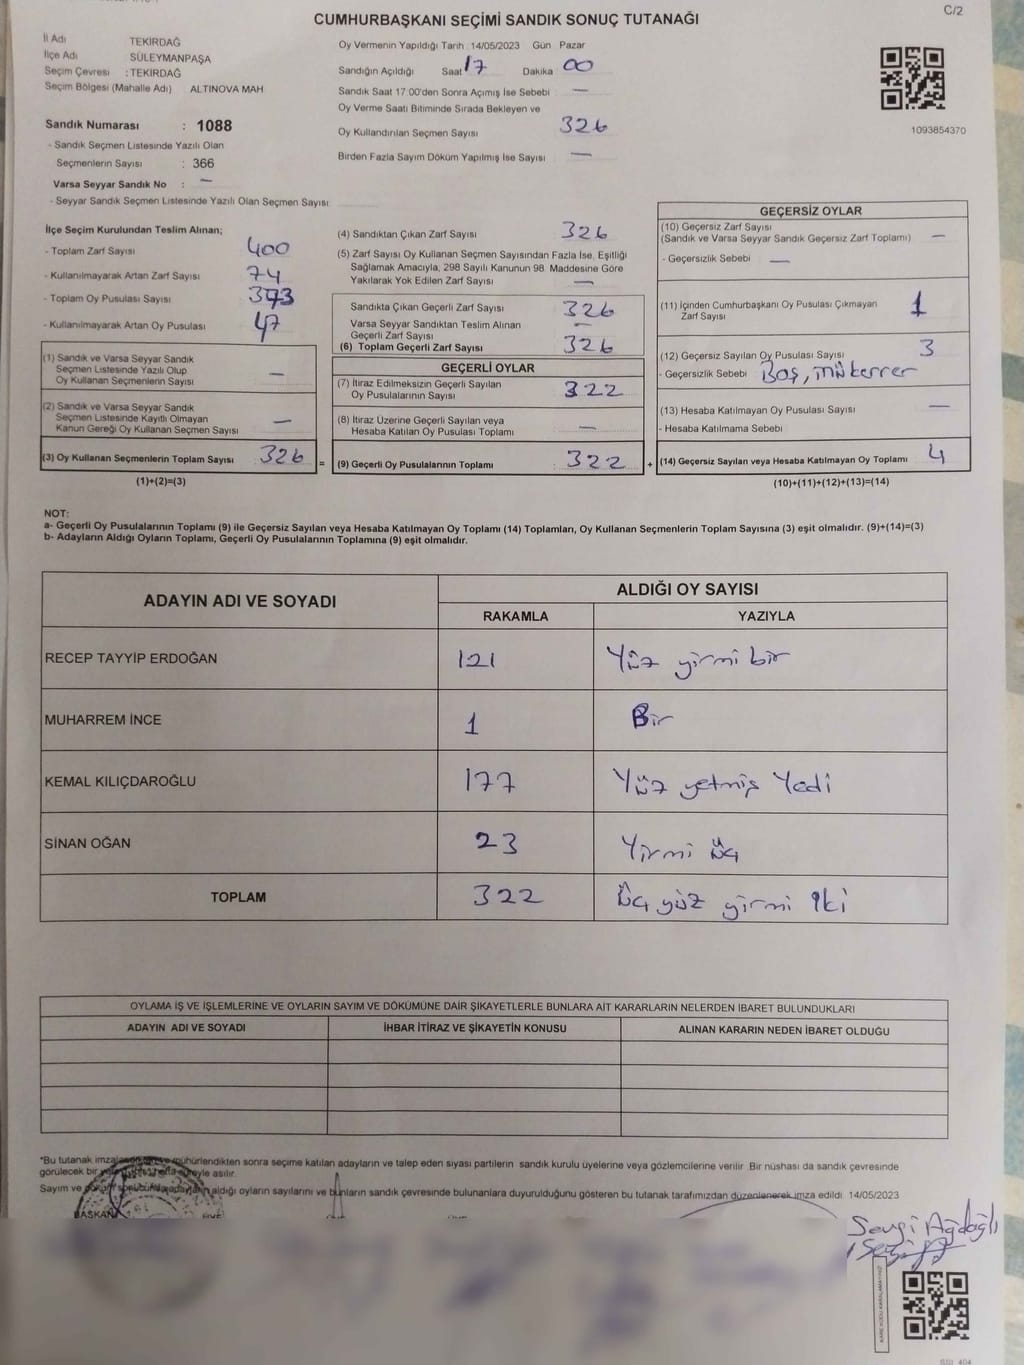 C/2
CUMHURBAŞKANI SEÇİMİ SANDIK SONUÇ TUTANAĞI
İl Adı TEKİRDAĞ
İlçe Adı SÜLEYMANPAŞA
Seçim Çevresi : TEKİRDAĞ
Seçim Bölgesi (Mahalle Adı) ALTINOVA MAH
Sandık Numarası : 1088
- Sandık Seçmen Listesinde Yazılı Olan
Seçmenlerin Sayısı : 366
Varsa Seyyar Sandık No : —
- Seyyar Sandık Seçmen Listesinde Yazılı Olan Seçmen Sayısı
Oy Vermenin Yapıldığı Tarih : 14/05/2023 Gün Pazar
Sandığın Açıldığı Saat 17 Dakika 00
Sandık Saat 17:00'den Sonra Açımış İse Sebebi : —
Oy Verme Saati Bitiminde Sırada Bekleyen ve
Oy Kullandırılan Seçmen Sayısı 326
Birden Fazla Sayım Döküm Yapılmış İse Sayısı —
1093854370
İlçe Seçim Kurulundan Teslim Alınan;
- Toplam Zarf Sayısı 400
- Kullanılmayarak Artan Zarf Sayısı 74
- Toplam Oy Pusulası Sayısı 373
- Kullanılmayarak Artan Oy Pusulası 47
(1) Sandık ve Varsa Seyyar Sandık
Seçmen Listesinde Yazılı Olup
Oy Kullanan Seçmenlerin Sayısı —
(2) Sandık ve Varsa Seyyar Sandık
Seçmen Listesinde Kayıtlı Olmayan
Kanun Gereği Oy Kullanan Seçmen Sayısı —
(3) Oy Kullanan Seçmenlerin Toplam Sayısı 326 =
(1)+(2)=(3)
(4) Sandıktan Çıkan Zarf Sayısı 326
(5) Zarf Sayısı Oy Kullanan Seçmen Sayısından Fazla İse, Eşitliği
Sağlamak Amacıyla, 298 Sayılı Kanunun 98. Maddesine Göre
Yakılarak Yok Edilen Zarf Sayısı —
Sandıkta Çıkan Geçerli Zarf Sayısı 326
Varsa Seyyar Sandıktan Teslim Alınan
Geçerli Zarf Sayısı —
(6) Toplam Geçerli Zarf Sayısı 326
GEÇERLİ OYLAR
(7) İtiraz Edilmeksizin Geçerli Sayılan
Oy Pusulalarının Sayısı : 322
(8) İtiraz Üzerine Geçerli Sayılan veya
Hesaba Katılan Oy Pusulası Toplamı : —
(9) Geçerli Oy Pusulalarının Toplamı : 322 +
GEÇERSİZ OYLAR
(10) Geçersiz Zarf Sayısı
(Sandık ve Varsa Seyyar Sandık Geçersiz Zarf Toplamı) —
- Geçersizlik Sebebi —
(11) İçinden Cumhurbaşkanı Oy Pusulası Çıkmayan
Zarf Sayısı 1
(12) Geçersiz Sayılan Oy Pusulası Sayısı 3
- Geçersizlik Sebebi Boş, mükerrer
(13) Hesaba Katılmayan Oy Pusulası Sayısı —
- Hesaba Katılmama Sebebi
(14) Geçersiz Sayılan veya Hesaba Katılmayan Oy Toplamı 4
(10)+(11)+(12)+(13)=(14)
NOT:
a- Geçerli Oy Pusulalarının Toplamı (9) ile Geçersiz Sayılan veya Hesaba Katılmayan Oy Toplamı (14) Toplamları, Oy Kullanan Seçmenlerin Toplam Sayısına (3) eşit olmalıdır. (9)+(14)=(3)
b- Adayların Aldığı Oyların Toplamı, Geçerli Oy Pusulalarının Toplamına (9) eşit olmalıdır.
ADAYIN ADI VE SOYADI ALDIĞI OY SAYISI
RAKAMLA YAZIYLA
RECEP TAYYİP ERDOĞAN 121 Yüz yirmi bir
MUHARREM İNCE 1 Bir
KEMAL KILIÇDAROĞLU 177 Yüz yetmiş Yedi
SİNAN OĞAN 23 Yirmi üç
TOPLAM 322 Üç yüz yirmi iki
OYLAMA İŞ VE İŞLEMLERİNE VE OYLARIN SAYIM VE DÖKÜMÜNE DAİR ŞİKAYETLERLE BUNLARA AİT KARARLARIN NELERDEN İBARET BULUNDUKLARI
ADAYIN ADI VE SOYADI İHBAR İTİRAZ VE ŞİKAYETİN KONUSU ALINAN KARARIN NEDEN İBARET OLDUĞU
*Bu tutanak mühürlendikten sonra seçime katılan adayların ve talep eden siyasi partilerin sandık kurulu üyelerine veya gözlemcilerine verilir. Bir nüshası da sandık çevresinde
görülecek bir süreyle asılır.
Sayım ve aldığı oyların sayılarını ve bunların sandık çevresinde bulunanlara duyurulduğunu gösteren bu tutanak tarafımızdan düzenlenerek imza edildi. 14/05/2023
BAŞKAN
Sevgi Ağdağlı